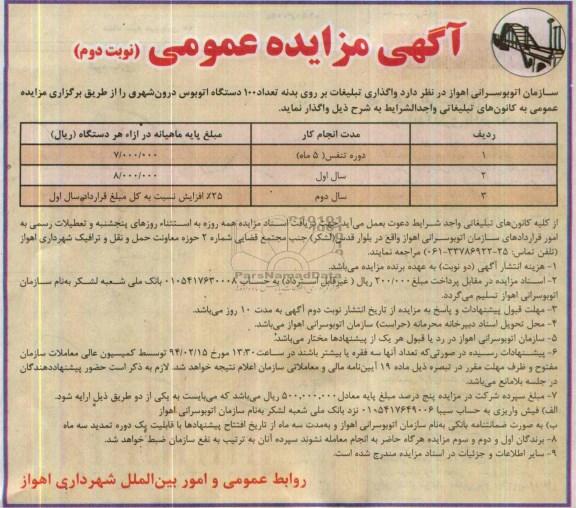 آگهی مزایده عمومی (نوبت دوم)
سازمان اتوبوسرانی اهواز در نظر دارد واگذاری تبلیغات بر روی بدنه تعداد۱۰۰ دستگاه اتوبوس درون‌شهری را از طریق برگزاری مزایده
عمومی به کانون‌های تبلیغاتی واجدالشرایط به شرح ذیل واگذار نماید.
ردیف مدت انجام کار مبلغ پایه ماهیانه در ازاء هر دستگاه (ریال)
۱ دوره تنفس( ۵ ماه) ۷/۰۰۰/۰۰۰
۲ سال اول ۸/۰۰۰/۰۰۰
۳ سال دوم ۲۵٪ افزایش نسبت به کل مبلغ قرارداد سال اول
از کلیه کانون‌های تبلیغاتی واجد شرایط دعوت بعمل می‌آید دریافت اسناد مزایده همه روزه به استثناء روزهای پنجشنبه و تعطیلات رسمی به
امور قراردادهای سازمان اتوبوسرانی اهواز واقع در بلوار قدس(لشکر) جنب مجتمع قضایی شماره ۲ حوزه معاونت حمل و نقل و ترافیک شهرداری اهواز
(تلفن تماس: ۲۵-۳۳۷۸۶۹۲۲-۰۶۱) مراجعه نمایند.
۱- هزینه انتشار آگهی (دو نوبت) به عهده برنده مزایده می‌باشد.
۲- اسناد مزایده در مقابل پرداخت مبلغ۲۰۰/۰۰۰ ریال ( غیرقابل استرداد) به حساب ۰۱۰۵۴۱۷۶۳۰۰۰۸ بانک ملی شعبه لشکر به‌نام سازمان
اتوبوسرانی اهواز تسلیم می‌گردد.
۳- مهلت قبول پیشنهادات و پاسخ به مزایده از تاریخ انتشار نوبت دوم آگهی به مدت ۱۰ روز می‌باشد.
۴- محل تحویل اسناد دبیرخانه محرمانه (حراست) سازمان اتوبوسرانی اهواز می‌باشد.
۵- سازمان اتوبوسرانی اهواز در رد یا قبول هر یک از پیشنهادها مختار می‌باشد.
۶- پیشنهادات رسیده در صورتی‌که تعداد آنها سه فقره یا بیشتر باشند در ساعت ۱۳:۳۰ مورخ ۹۴/۰۲/۱۵ توسط کمیسیون عالی معاملات سازمان
مفتوح و ظرف مهلت مقرر در تبصره ذیل ماده ۱۹ آیین‌نامه مالی و معاملاتی سازمان اعلام نتیجه خواهد شد. لازم به ذکر است حضور پیشنهاددهندگان
در جلسه بلامانع می‌باشد.
۷- مبلغ سپرده شرکت در مزایده پنج درصد مبلغ پایه معادل ۵۰۰,۰۰۰,۰۰۰ ریال می‌باشد که می‌بایست به یکی از دو طریق ذیل ارایه شود.
الف) فیش واریزی به حساب سیبا ۰۱۰۵۴۱۷۶۴۹۰۰۶ نزد بانک ملی شعبه لشکر به‌نام سازمان اتوبوسرانی اهواز
ب) به صورت ضمانتنامه بانکی به‌نام سازمان اتوبوسرانی اهواز و به‌مدت سه ماه از تاریخ افتتاح پیشنهادها با قابلیت یک دوره تمدید سه ماه
۸- برندگان اول و دوم و سوم مزایده هرگاه حاضر به انجام معامله نشوند سپرده آنان به ترتیب به نفع سازمان ضبط خواهد شد.
۹- سایر اطلاعات و جزئیات در اسناد مزایده مندرج شده است.
روابط عمومی و امور بین‌الملل شهرداری اهواز
ParsNamadData